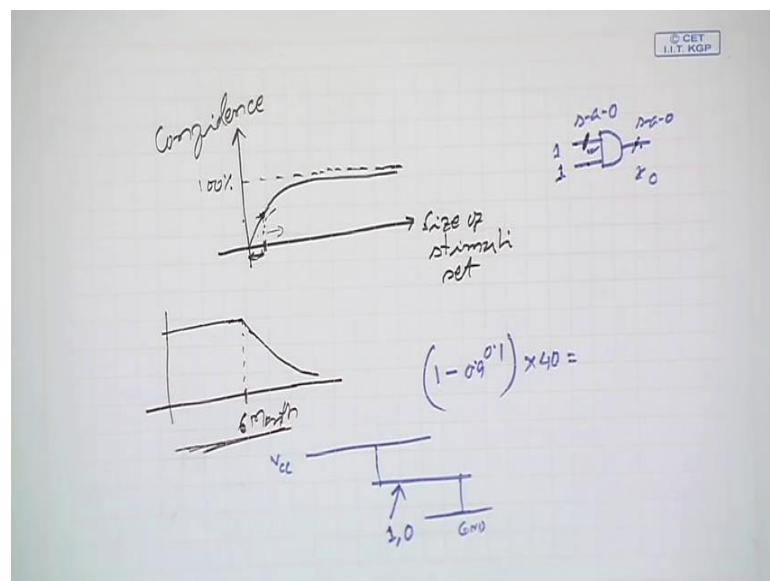 © CET
I.I.T. KGP
Confidence
100%
Size of
stimuli
set
s-a-0
s-a-0
1
1
0
6 Month
(1 - 0.9^0.1) × 40 =
Vcc
1,0
GND